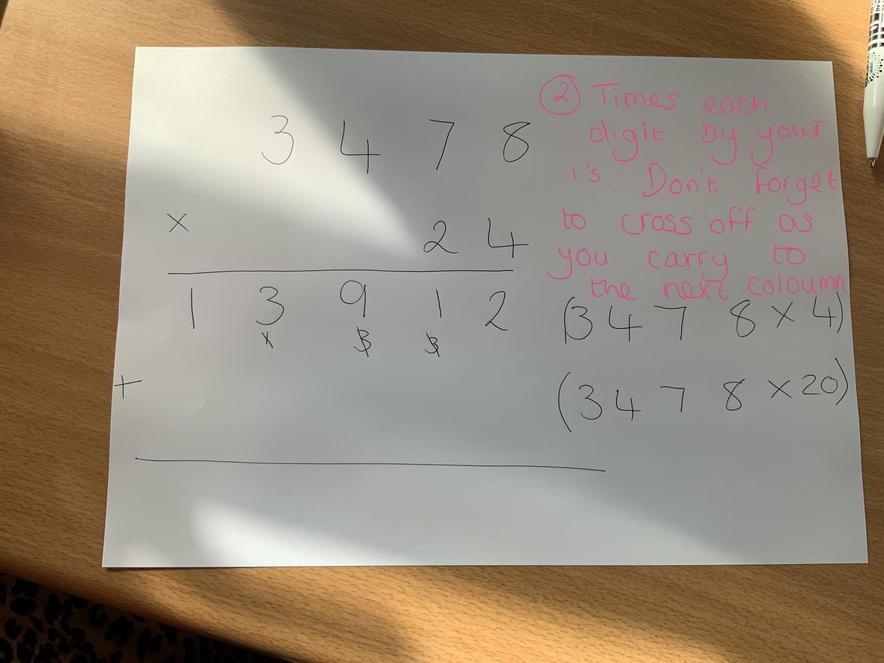 ② Times each
digit by your
1's. Don't forget
to cross off as
you carry to
the next coloumn
3 4 7 8
× 2 4
1 3 9 1 2 (3 4 7 8 × 4)
1 3 3
+ (3 4 7 8 × 20)